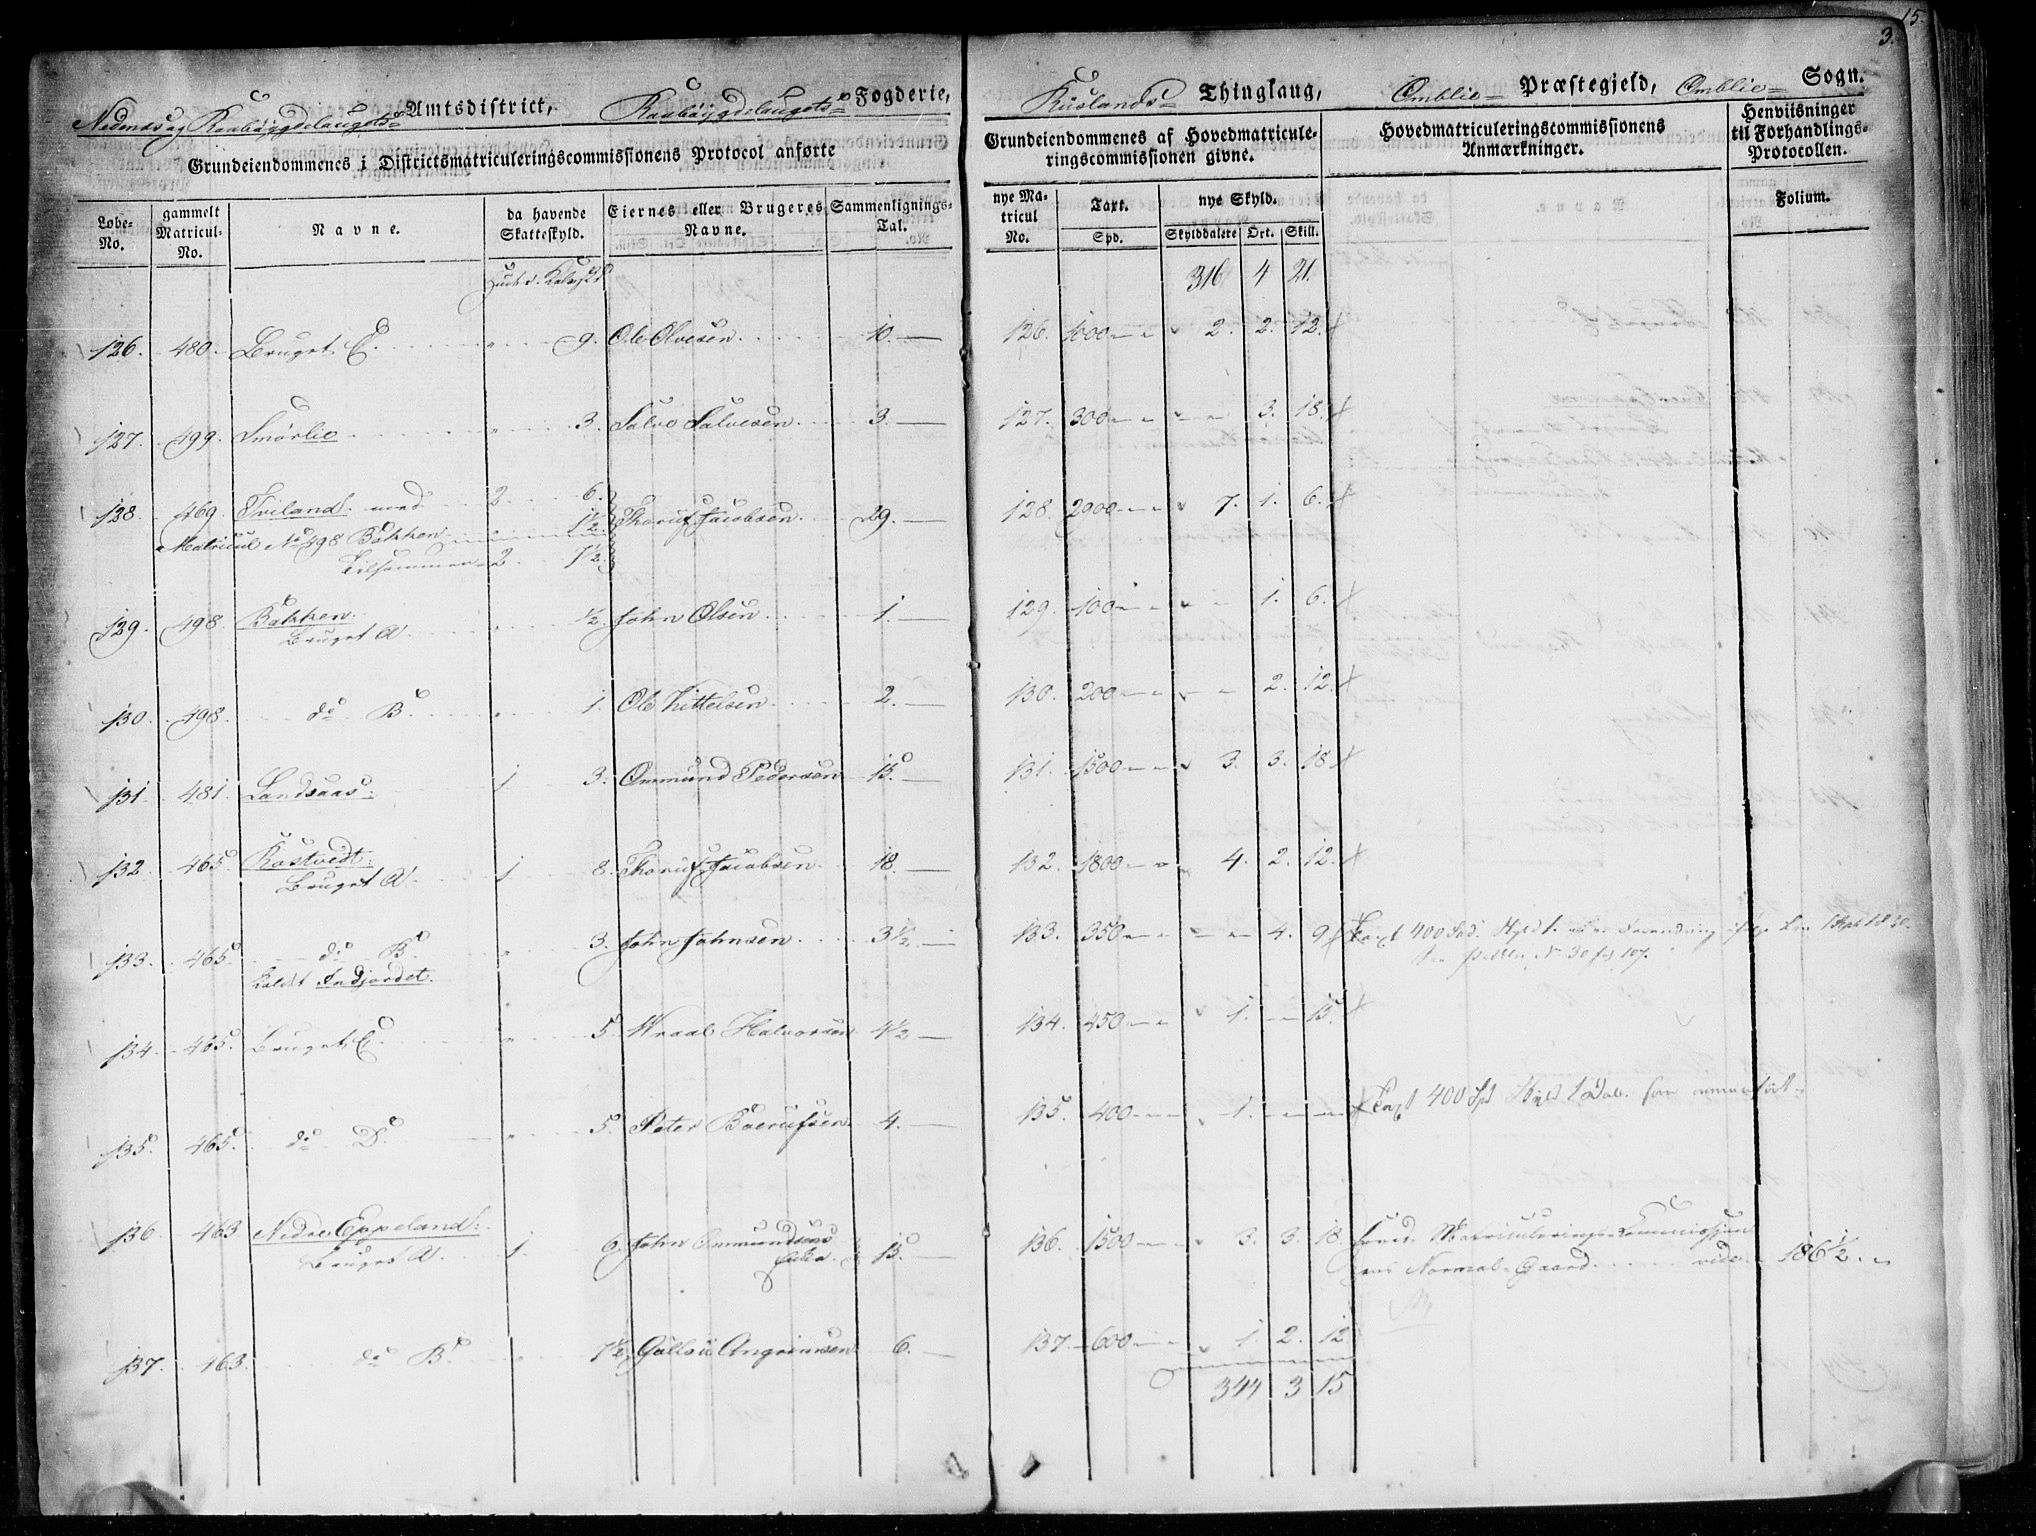 15.
3.
Nedenæs og Raabøigdelaugets Amtsdistrict, Raabøigdelaugets Fogderie,
Grundeiendommenes i Districtsmatriculeringscommissionens Protocol anførte
Løbe-No. gammelt Matricul-No. Navne. da havende Skatteskyld. Eiernes eller Brugeres Navne. Sammenligningstal.
126. 480. Bruget C. " 9. Ole Olvesen 10.
127. 499. Smørlie " 3. Salve Salvesen 3.
128. 469. Triland med 2. 6. Thoruf Jacobsen 29.
Matricul No 498 Bakken " 1½.
Tilsammen 2 7½.
129. 498. Bakken: " ½. John Olsen 1.
Bruget A.
130. 498. do B. " 1. Ole Kittelsen 2.
131. 481. Landsaas: 1 3. Ommund Pedersen 15.
132. 465. Rostvedt: 1 8. Thoruf Jacobsen 18.
Bruget A.
133. 465. do B. " 3. John Johnsen 3½.
kaldt Indjordet.
134. 465. Bruget C. " 5. Wraal Halvorsen 4½
135. 465. do D. " 5. Peter 4.
136. 463 Nedre Eppeland: 1. 6. John Ommundsens Enke 15.
Bruget A.
137. 463. do B. " 1½. 6.
Thinglaug, Omblie Præstegjeld, Omblie Sogn.
Grundeiendommenes af Hovedmatriculeringscommissionen givne.
Hovedmatriculeringscommissionens Anmærkninger.
Henviisninger til Forhandlings-Protocollen.
nye Matricul No. Taxt. Spd. nye Skyld. Skylddalere Ort. Skill. Folium.
316 4 21.
126. 1000 2. 2. 12.
127. 300 3. 18.
128. 2000 7. 1. 6.
129. 100 1. 6.
130. 200 2. 12.
131. 1500 3. 3. 18
132. 1800 4. 2. 12.
133. 350 4. 9 Taxt 400 Spd. Skyld 1.
No 30 fol 107.
134. 450 1. 15.
135. 400 1. Taxt 400 Spd Skyld 1 Dal.
136. 1500 3. 3. 18 Matriculerings-Commissionens Normal-Gaard vide 186½.
137. 600 1. 2. 12
344 3 15